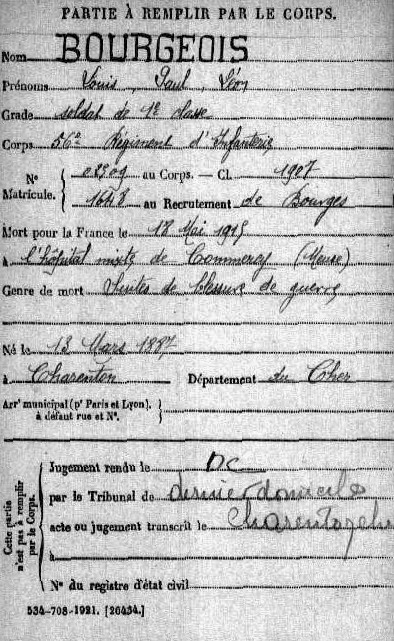 PARTIE À REMPLIR PAR LE CORPS.
Nom BOURGEOIS
Prénoms Louis, Paul, Léon
Grade soldat de 1e classe
Corps 56e Régiment d'Infanterie
N° Matricule. 02309 au Corps. — Cl. 1907
1648 au Recrutement de Bourges
Mort pour la France le 18 Mai 1915
à l'hôpital mixte de Commercy (Meuse)
Genre de mort Suites de blessure de guerre
Né le 13 Mars 1887
à Charenton Département du Cher
Arr' municipal (p' Paris et Lyon),
à défaut rue et N°.
Cette partie n'est pas à remplir par le Corps.
Jugement rendu le DC
par le Tribunal de dernier domicile
acte ou jugement transcrit le Charenton cher
à
N° du registre d'état civil
534-708-1921. [26434.]